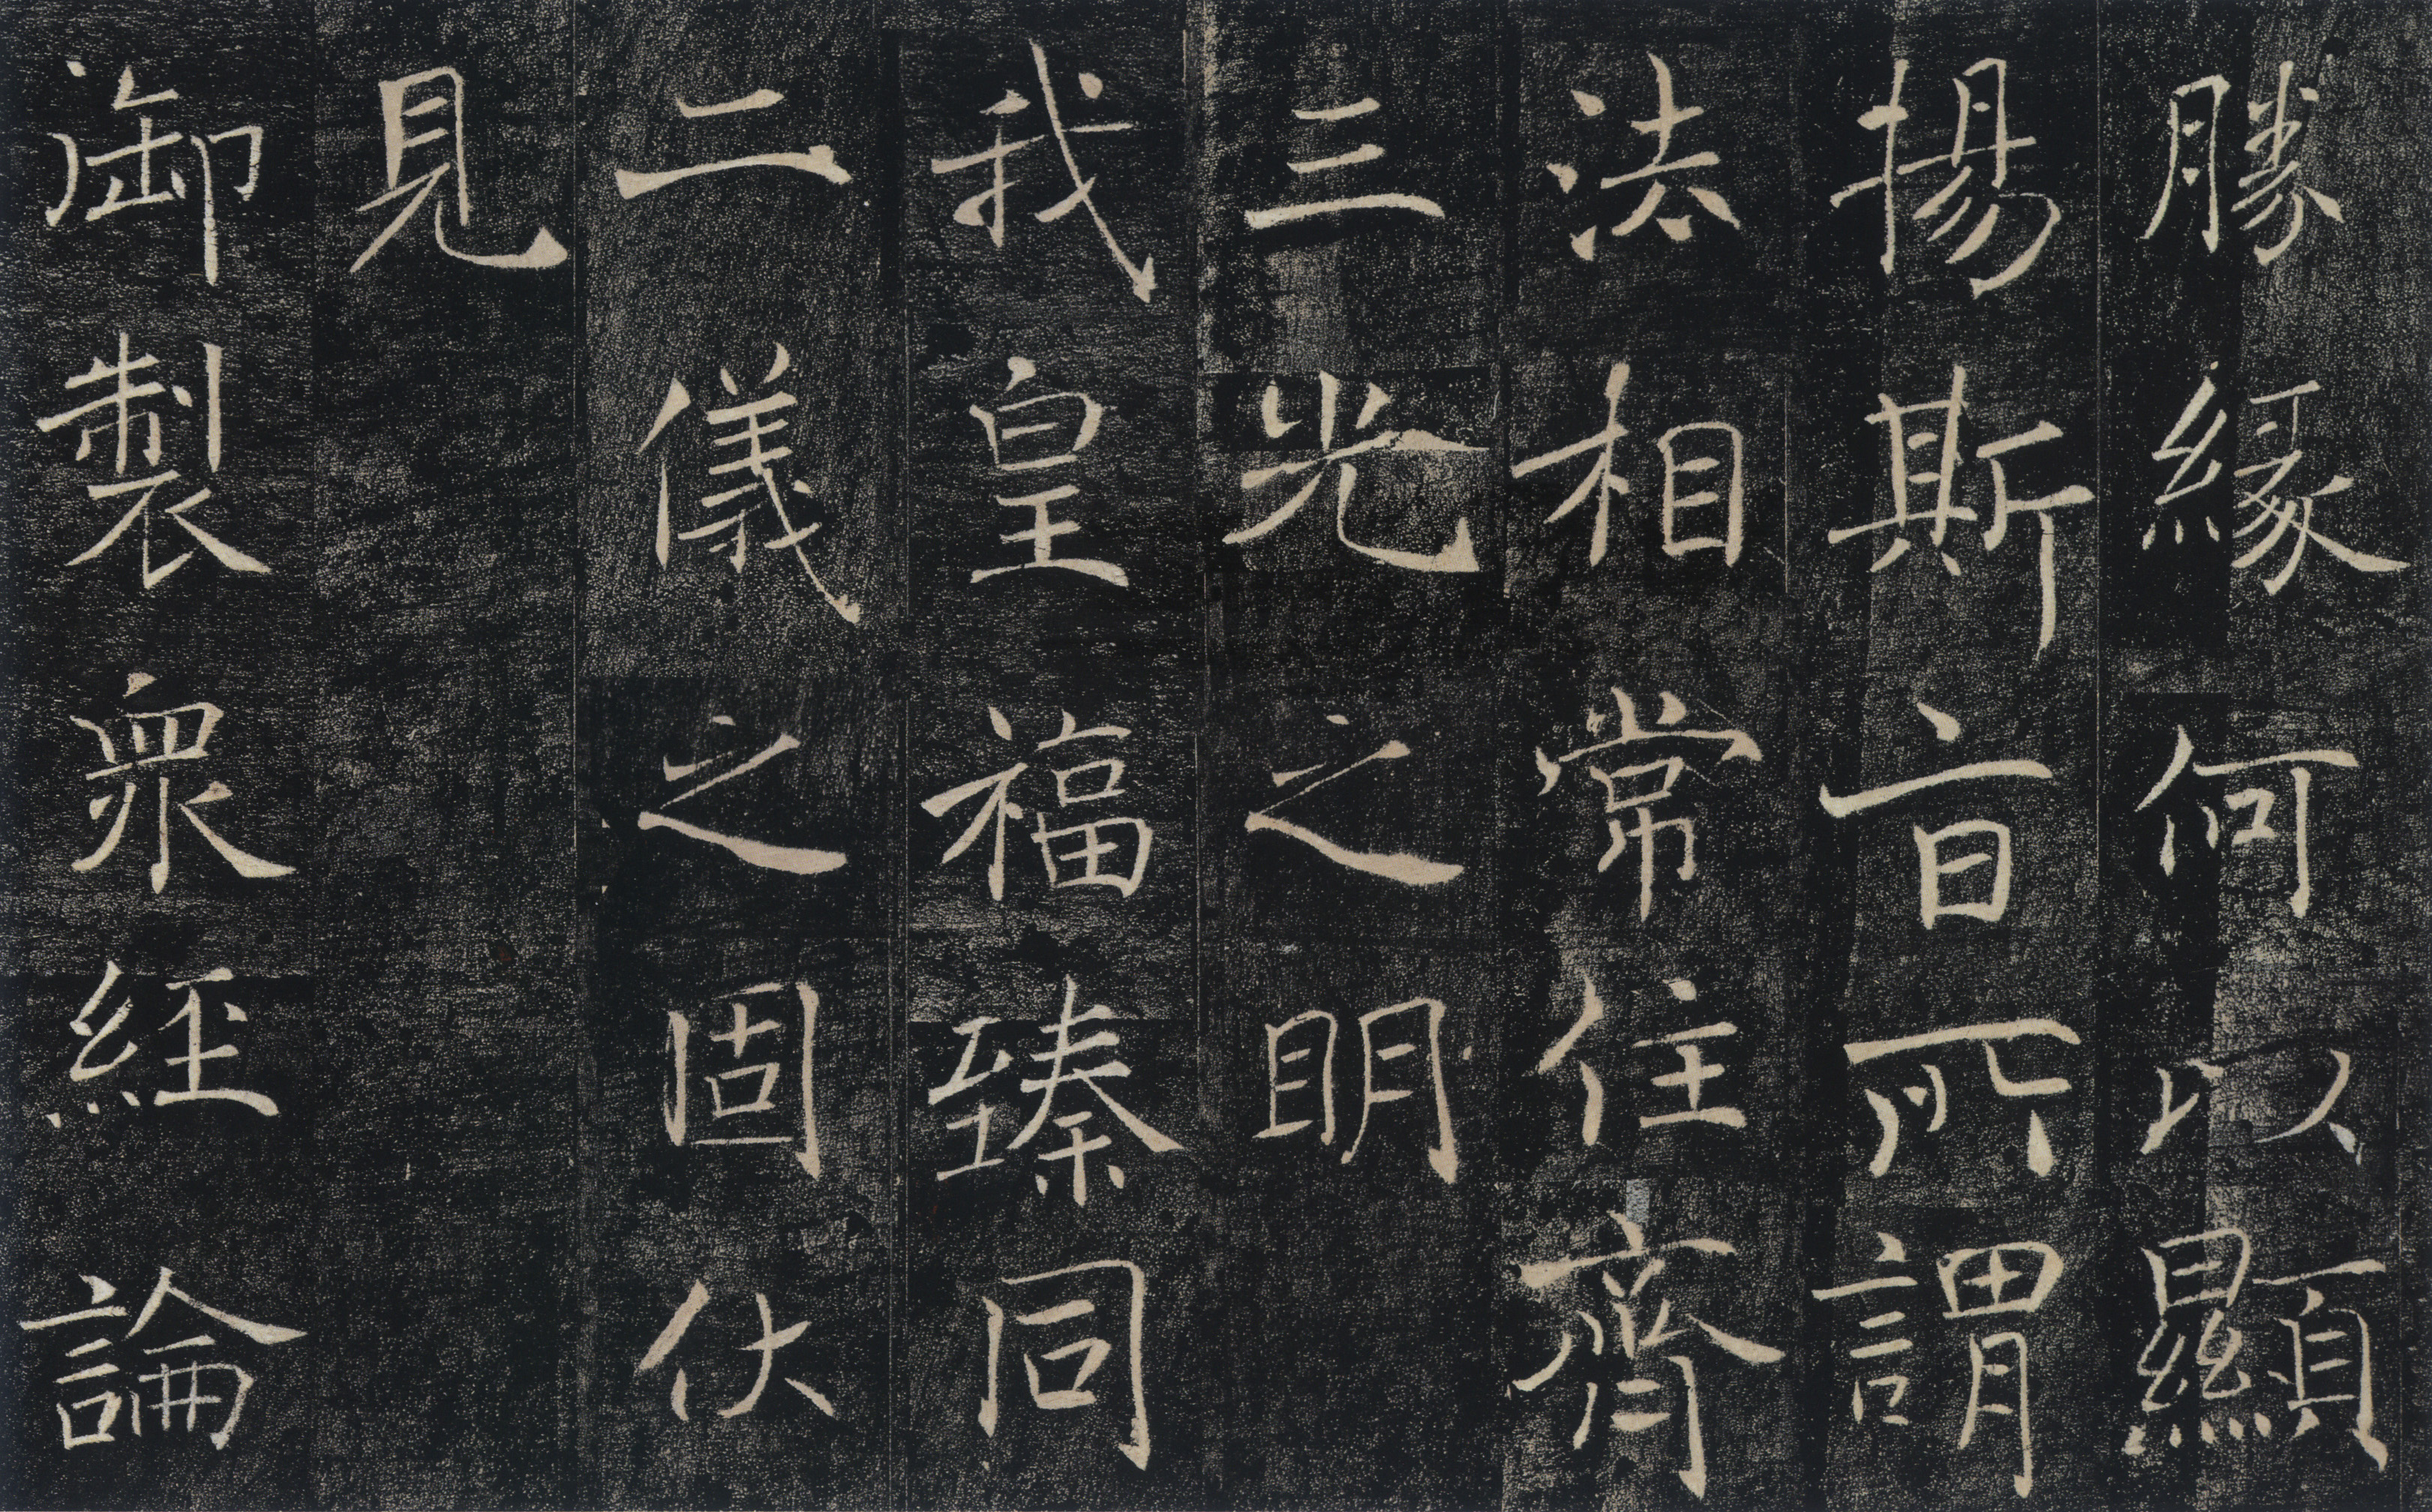 勝緣何以顯
揚斯旨所謂
法相常住齊
三光之明
我皇福臻同
二儀之固伏
見
御製眾經論